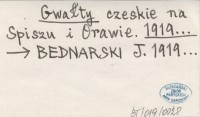 Gwałty czeskie na
Spiszu i Orawie. 1919...
→ BEDNARSKI J. 1919...